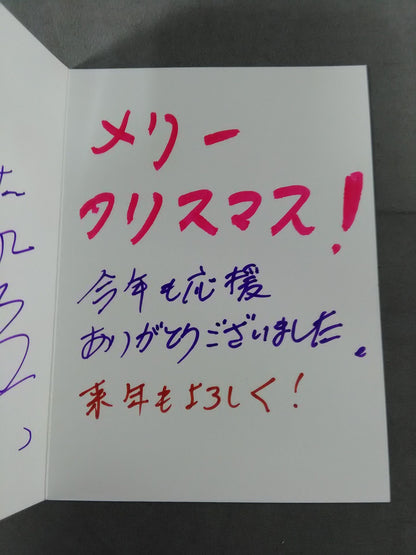 メリー
クリスマス！
今年も応援
ありがとうございました。
来年もよろしく！